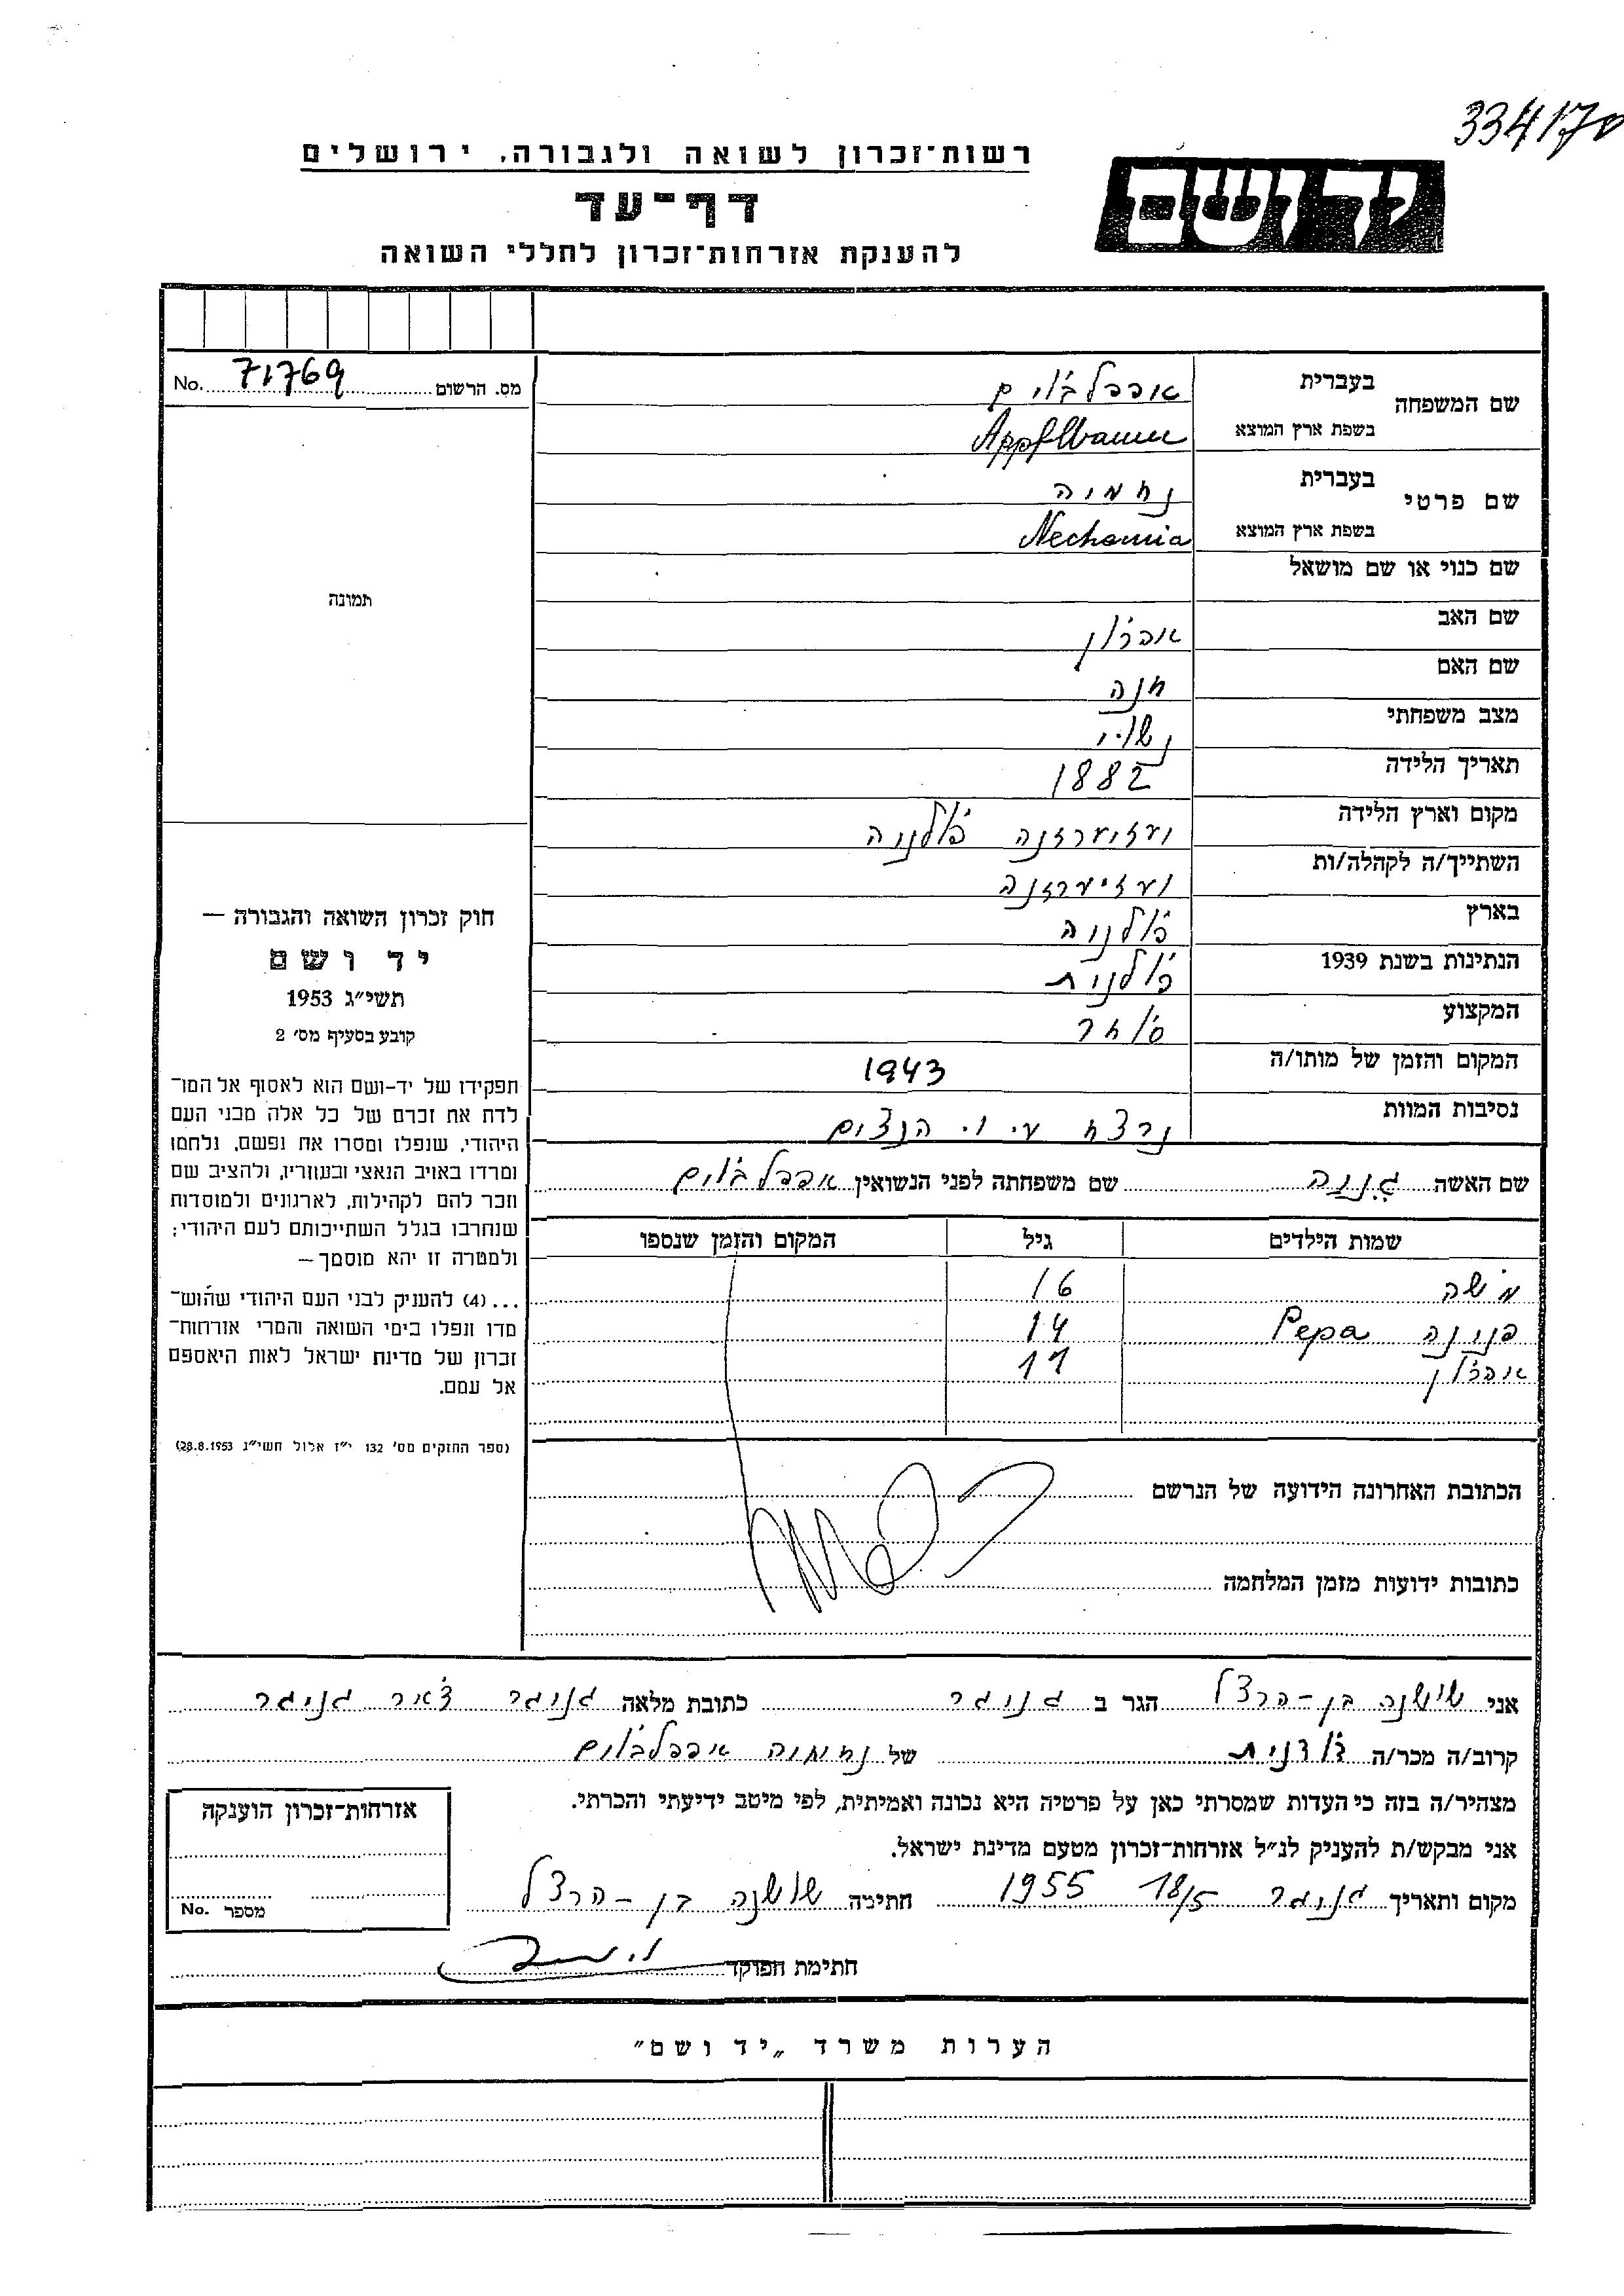 334170
רשות־זכרון לשואה ולגבורה, ירושלים
יד ושם
דף־עד
להענקת אזרחות־זכרון לחללי השואה
מס. הרשום 71769 No.
שם המשפחה
בעברית אפפלבוים
בשפת ארץ המוצא Appflbaum
שם פרטי
בעברית נחמיה
בשפת ארץ המוצא Nechamia
שם כנוי או שם מושאל
שם האב אהרון
שם האם חנה
מצב משפחתי נשוי
תאריך הלידה 1882
מקום וארץ הלידה פולניה
השתייך/ה לקהלה/ות
בארץ פולניה
הנתינות בשנת 1939 פולנית
המקצוע סוחר
המקום והזמן של מותו/ה 1943
נסיבות המוות נרצח ע. י. הנצים
שם האשה שם משפחתה לפני הנשואין אפפלבוים
שמות הילדים גיל המקום והזמן שנספו
משה 16
פנינה Pepa 14
אהרון 11
הכתובת האחרונה הידועה של הנרשם
כתובות ידועות מזמן המלחמה
תמונה
חוק זכרון השואה והגבורה —
יד ושם
תשי״ג 1953
קובע בסעיף מס׳ 2
תפקידו של יד-ושם הוא לאסוף אל המו־
לדת את זכרם של כל אלה מבני העם
היהודי, שנפלו ומסרו את נפשם, נלחמו
ומרדו באויב הנאצי ובעוזריו, ולהציב שם
וזכר להם לקהילות, לארגונים ולמוסדות
שנחרבו בגלל השתייכותם לעם היהודי;
ולמטרה זו יהא מוסמך —
...(4) להעניק לבני העם היהודי שהוש־
מדו ונפלו בימי השואה והמרי אזרחות־
זכרון של מדינת ישראל לאות היאספם
אל עמם.
(ספר החוקים מס׳ 132 י״ז אלול תשי״ג 28.8.1953)
אני שושנה בן-הרצל הגר ב גניגר כתובת מלאה גניגר דאר גניגר
קרוב/ה מכר/ה בודנית של נחמיה אפפלבוים
מצהיר/ה בזה כי העדות שמסרתי כאן על פרטיה היא נכונה ואמיתית, לפי מיטב ידיעתי והכרתי.
אני מבקש/ת להעניק לנ״ל אזרחות־זכרון מטעם מדינת ישראל.
מקום ותאריך גניגר 18/5 1955 חתימה שושנה בן-הרצל
חתימת הפוקד
אזרחות־זכרון הוענקה
מספר No.
הערות משרד „יד ושם״